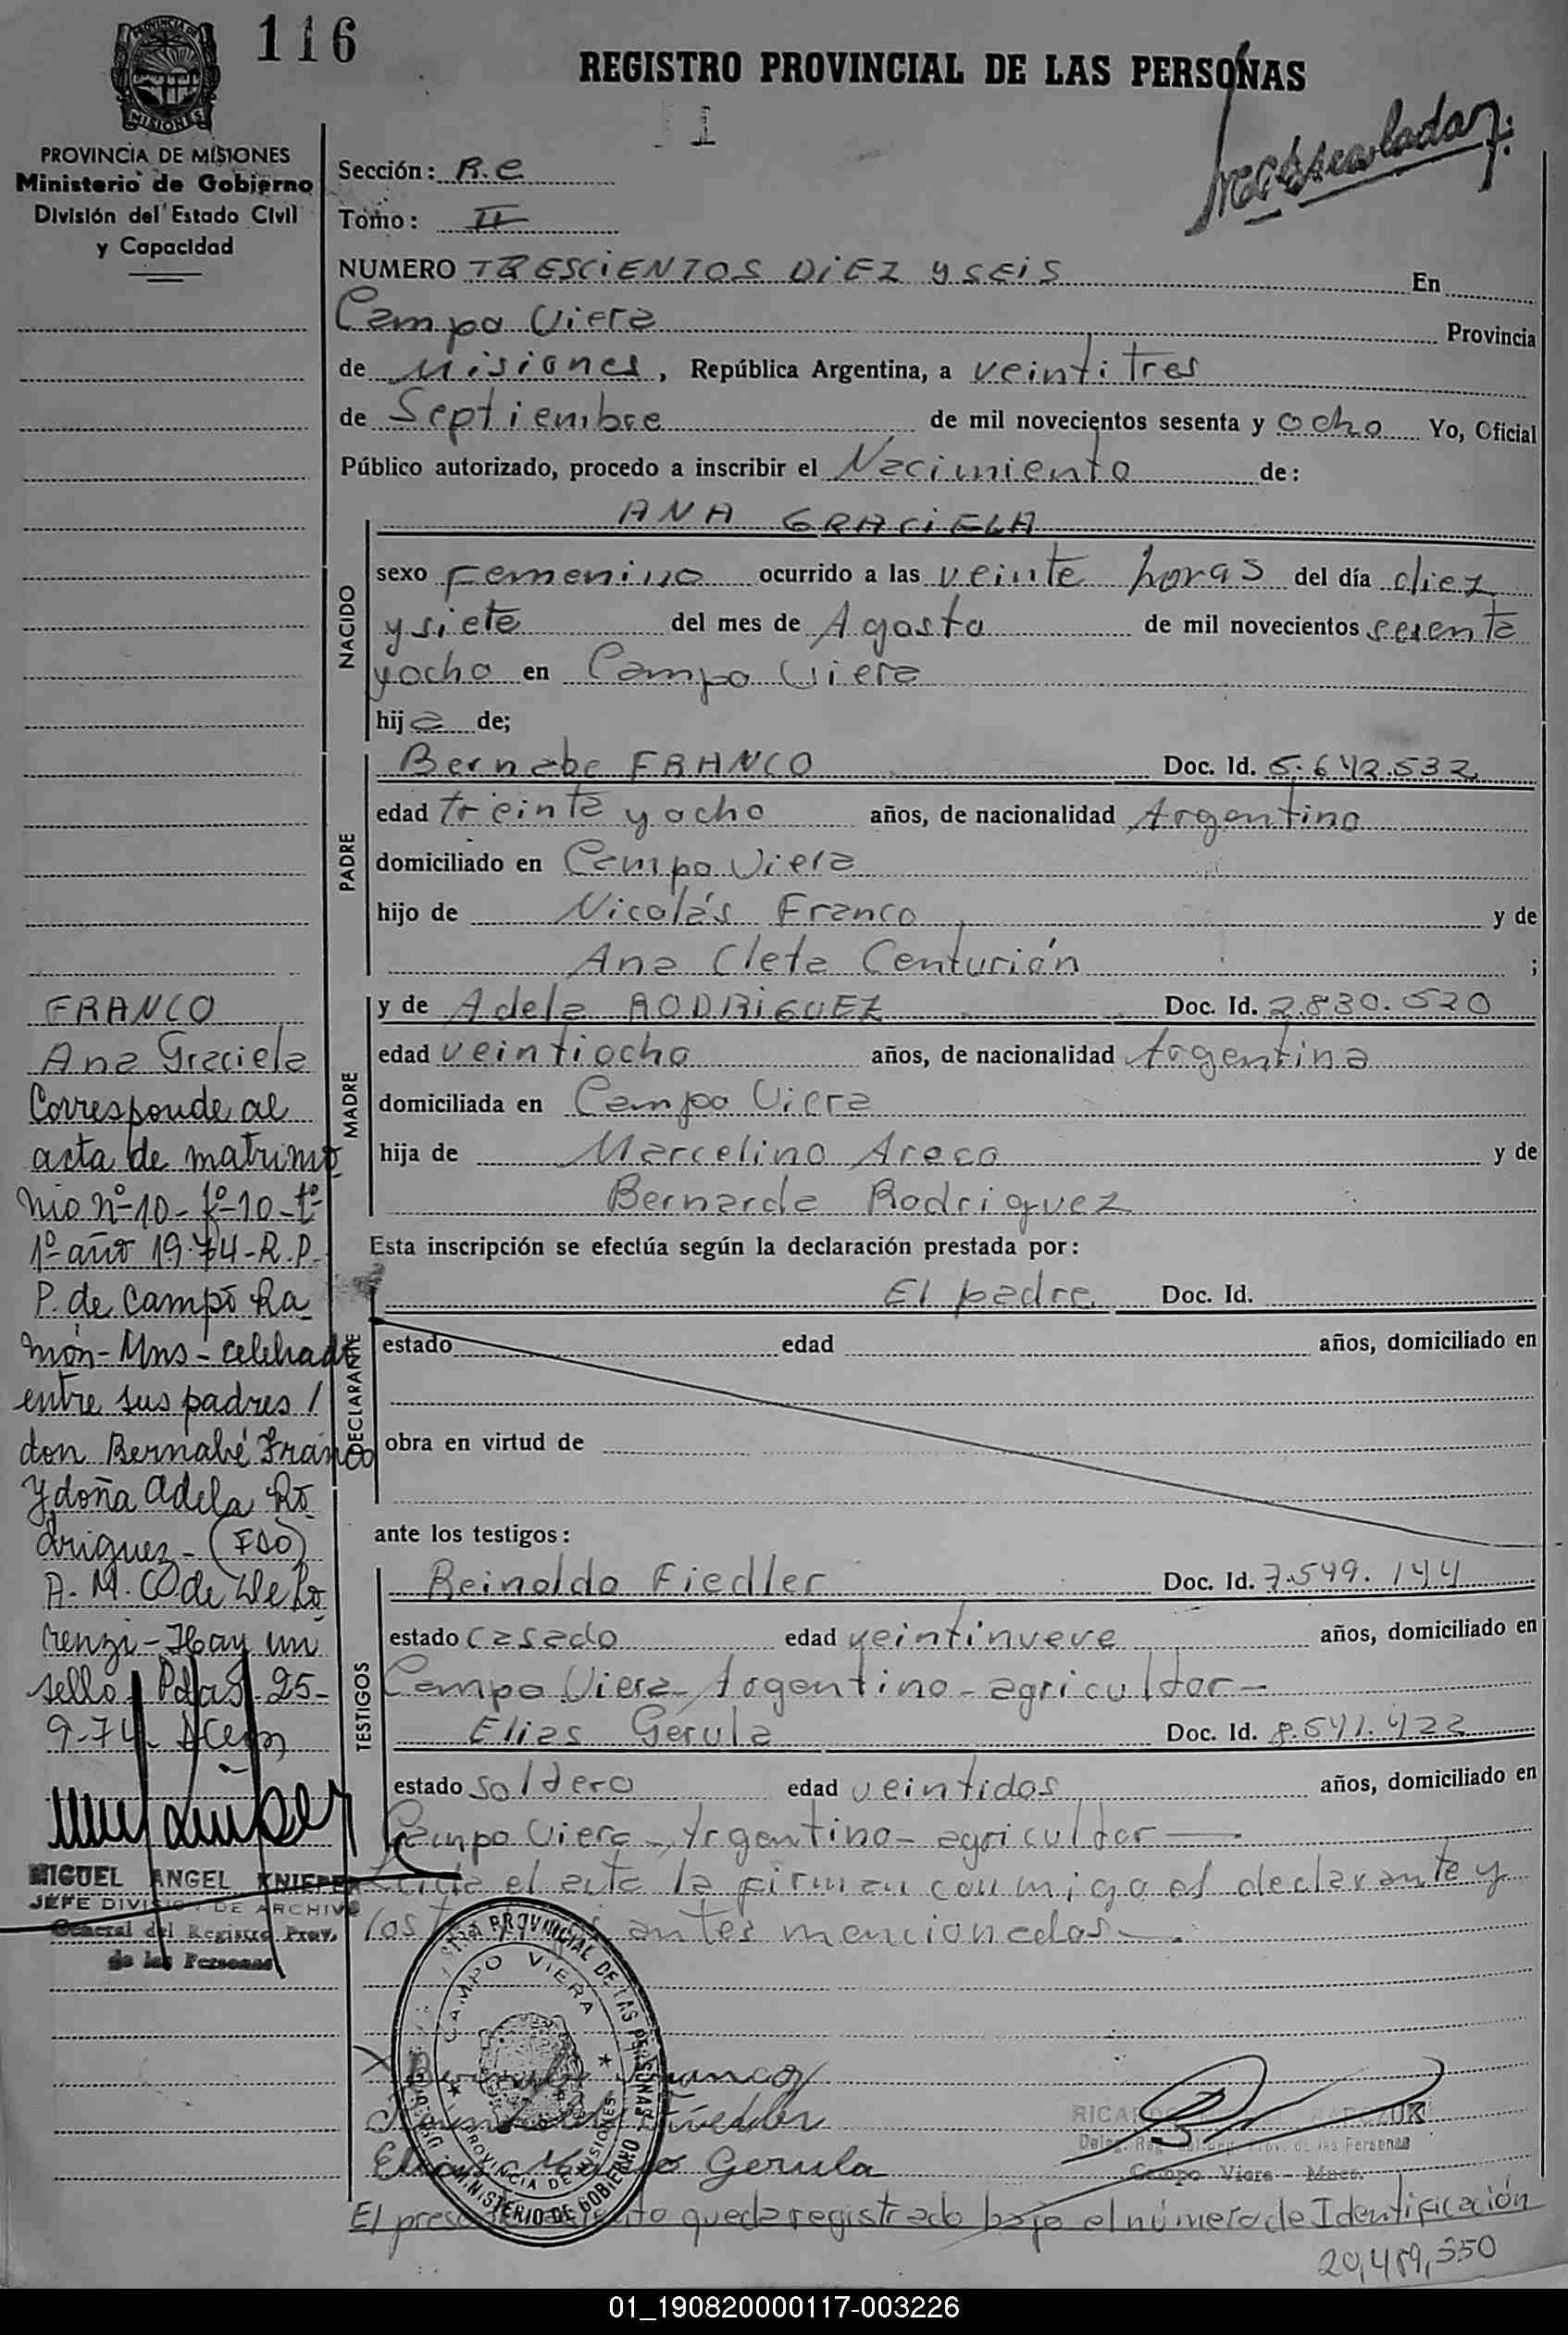 116
REGISTRO PROVINCIAL DE LAS PERSONAS
I
PROVINCIA DE MISIONES
Ministerio de Gobierno
División del Estado Civil
y Capacidad
Sección: R.e
Tomo: II
NUMERO TRESCIENTOS DIEZ y SEIS En
Campo Viera Provincia
de Misiones, República Argentina, a veintitres
de Septiembre de mil novecientos sesenta y ocho Yo, Oficial
Público autorizado, procedo a inscribir el Nacimiento de:
ANA GRACIELA
NACIDO
sexo Femenino ocurrido a las veinte horas del día diez
y siete del mes de Agosto de mil novecientos sesenta
yocho en Campo Viera
hija de;
PADRE
Bernabe FRANCO Doc. Id. 5.642.532
edad treinta y ocho años, de nacionalidad Argentino
domiciliado en Campo Viera
hijo de Nicolás Franco y de
Ana Cleta Centurión ;
MADRE
y de Adela RODRIGUEZ Doc. Id. 2.830.520
edad veintiocho años, de nacionalidad Argentina
domiciliada en Campo Viera
hija de Marcelino Areco y de
Bernarda Rodriguez
Esta inscripción se efectúa según la declaración prestada por:
DECLARANTE
El padre Doc. Id.
estado edad años, domiciliado en
obra en virtud de
ante los testigos:
TESTIGOS
Reinoldo Fiedler Doc. Id. 7.549.144
estado casado edad veintinueve años, domiciliado en
Campo Viera-Argentino-agricultor-
Elias Gerula Doc. Id. 8.541.422
estado soltero edad veintidos años, domiciliado en
Campo Viera-Argentino-agricultor-
Leida el acta la firman conmigo el declarante y
los antes mencionados-.
FRANCO
Ana Graciela
Corresponde al
acta de matrimo
nio nº-10-fº-10-tº
1º año 1974-R.P.
P. de Campo Ra
món-Mns-celebrado
entre sus padres/
don Bernabé Franco
y doña Adela Ro
driguez-(FDO)
A. M. CO de De Lo
renzi-Hay un
sello. Pdas. 25-
9-74.
MIGUEL ANGEL KNIEPER
JEFE DIVISION DE ARCHIVO
General del Registro Prov.
de las Personas
REGISTRO PROVINCIAL DE LAS PERSONAS
MINISTERIO DE GOBIERNO
CAMPO VIERA
PROVINCIA DE MISIONES
Franco
Fiedler
Elias Gerula
RICARDO
Deleg. Reg. Prov. de las Personas
Campo Viera - Mnes.
El presente queda registrado bajo el número de Identificación
20,489,350
01_190820000117-003226